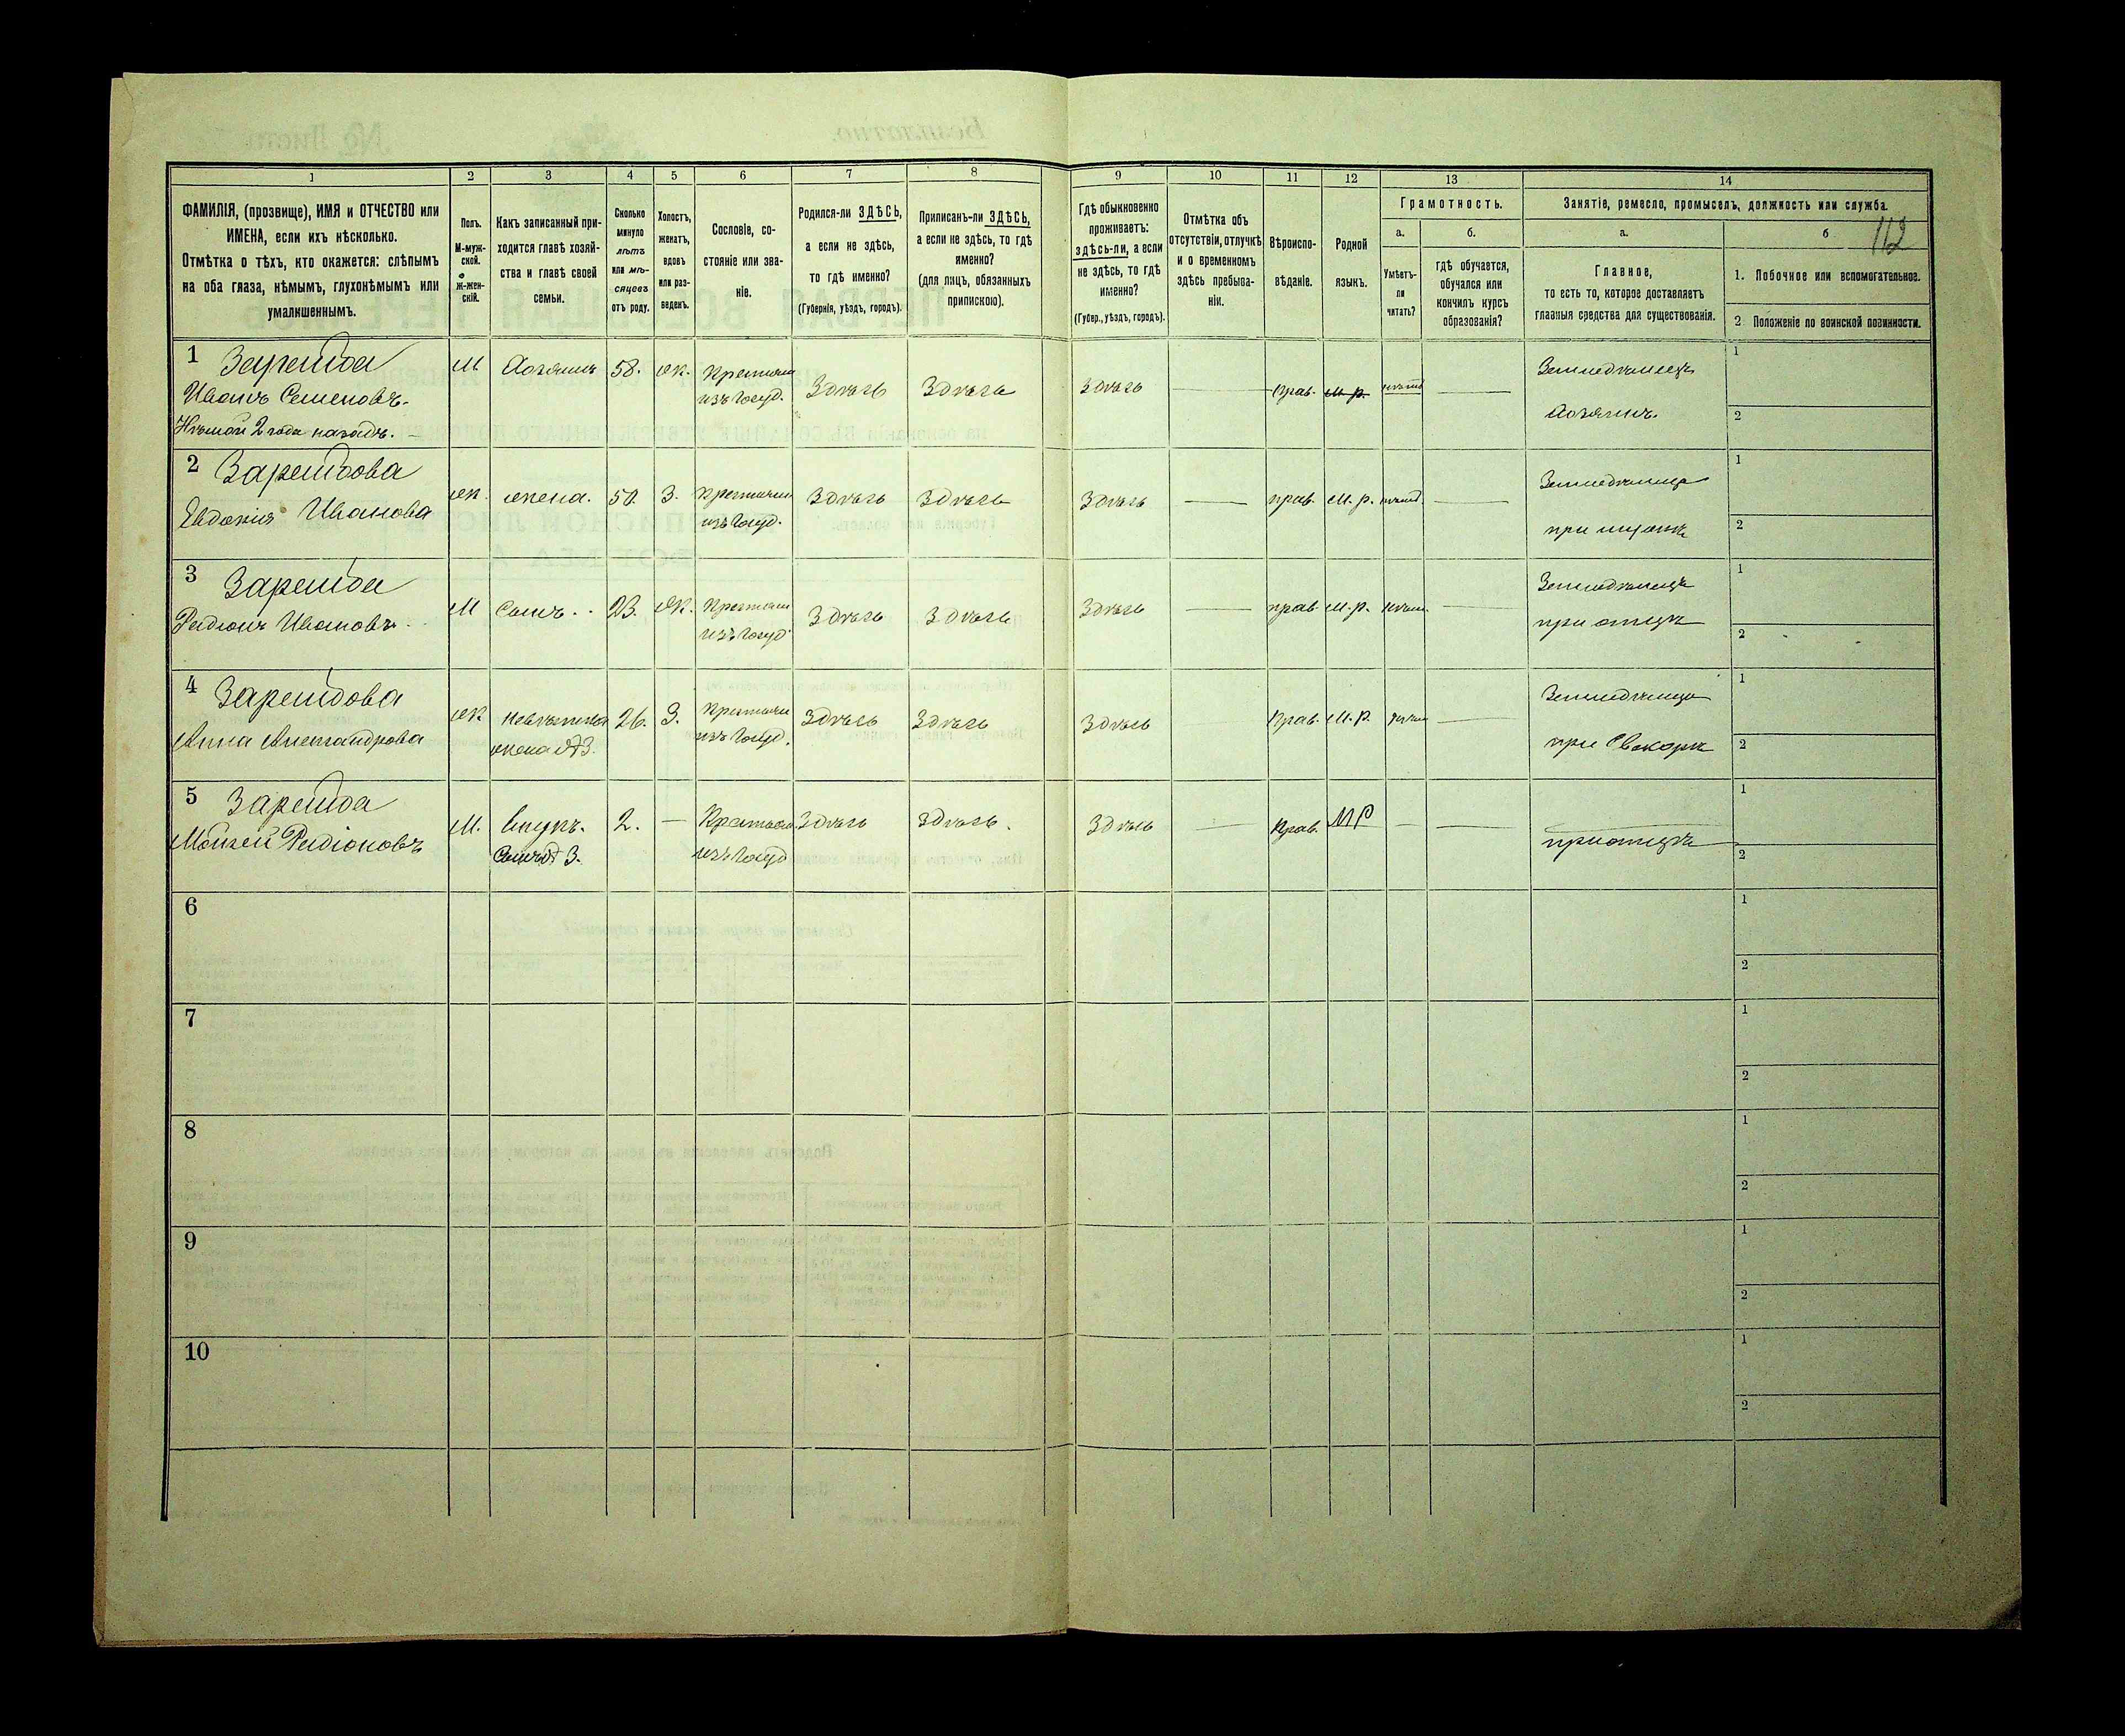 112
1 2 3 4 5 6 7 8 9 10 11 12 13 14
ФАМИЛІЯ, (прозвище), ИМЯ и ОТЧЕСТВО или
ИМЕНА, если ихъ нѣсколько.
Отмѣтка о тѣхъ, кто окажется: слѣпымъ
на оба глаза, нѣмымъ, глухонѣмымъ или
умалишеннымъ.
Полъ.
М-муж-
ской.
Ж-жен-
скій.
Какъ записанный при-
ходится главѣ хозяй-
ства и главѣ своей
семьи.
Сколько
минуло
лѣтъ
или мѣ-
сяцевъ
отъ роду.
Холостъ,
женатъ,
вдовъ
или раз-
веденъ.
Сословіе, со-
стояніе или зва-
ніе.
Родился-ли ЗДѢСЬ,
а если не здѣсь,
то гдѣ именно?
(Губернія, уѣздъ, городъ).
Приписанъ-ли ЗДѢСЬ,
а если не здѣсь, то гдѣ
именно?
(для лицъ, обязанныхъ
припискою).
Гдѣ обыкновенно
проживаетъ:
здѣсь-ли, а если
не здѣсь, то гдѣ
именно?
(Губер., уѣздъ, городъ).
Отмѣтка объ
отсутствіи, отлучкѣ
и о временномъ
здѣсь пребыва-
ніи.
Вѣроиспо-
вѣданіе.
Родной
языкъ.
Грамотность.
а.
Умѣетъ-
ли
читать?
б.
гдѣ обучается,
обучался или
кончилъ курсъ
образованія?
Занятіе, ремесло, промыселъ, должность или служба.
а.
Главное,
то есть то, которое доставляетъ
главныя средства для существованія.
б
1. Побочное или вспомогательное.
2 Положеніе по воинской повинности.
1 Зарейда
Иванъ Семеновъ.
Нѣмой 2 года назадъ.
М Хозяинъ 58. ж.
Крестьян
изъ Госуд.
Здѣсь Здѣсь Здѣсь — прав. м. р. нѣтъ —
Земледѣлецъ
Хозяинъ.
1
2
2 Зарейдова
Евдокія Иванова
ж. жена. 50. З.
Крестьян
изъ Госуд.
Здѣсь Здѣсь Здѣсь — прав. м. р. нѣтъ —
Земледѣлица
при мужѣ
1
2
3 Зарейда
Радіонъ Ивановъ.
М Сынъ. 23. Ж.
Крестьян
изъ Госуд
Здѣсь Здѣсь Здѣсь — прав м. р. нѣтъ —
Земледѣлецъ
при отцѣ
1
2
4 Зарейдова
Анна Александрова
ж невѣстка
жена №3.
26. З.
Крестьян
изъ Госуд.
Здѣсь Здѣсь Здѣсь — прав. м. р. нѣтъ —
Земледѣлица
при Свекорѣ
1
2
5 Зарейда
Моисей Радіоновъ
М. Внукъ.
Сынъ № 3.
2. —
Крестьян.
изъ Госуд
Здѣсь Здѣсь. Здѣсь — прав. МР — —
при отцѣ
1
2
6
1
2
7
1
2
8
1
2
9
1
2
10
1
2